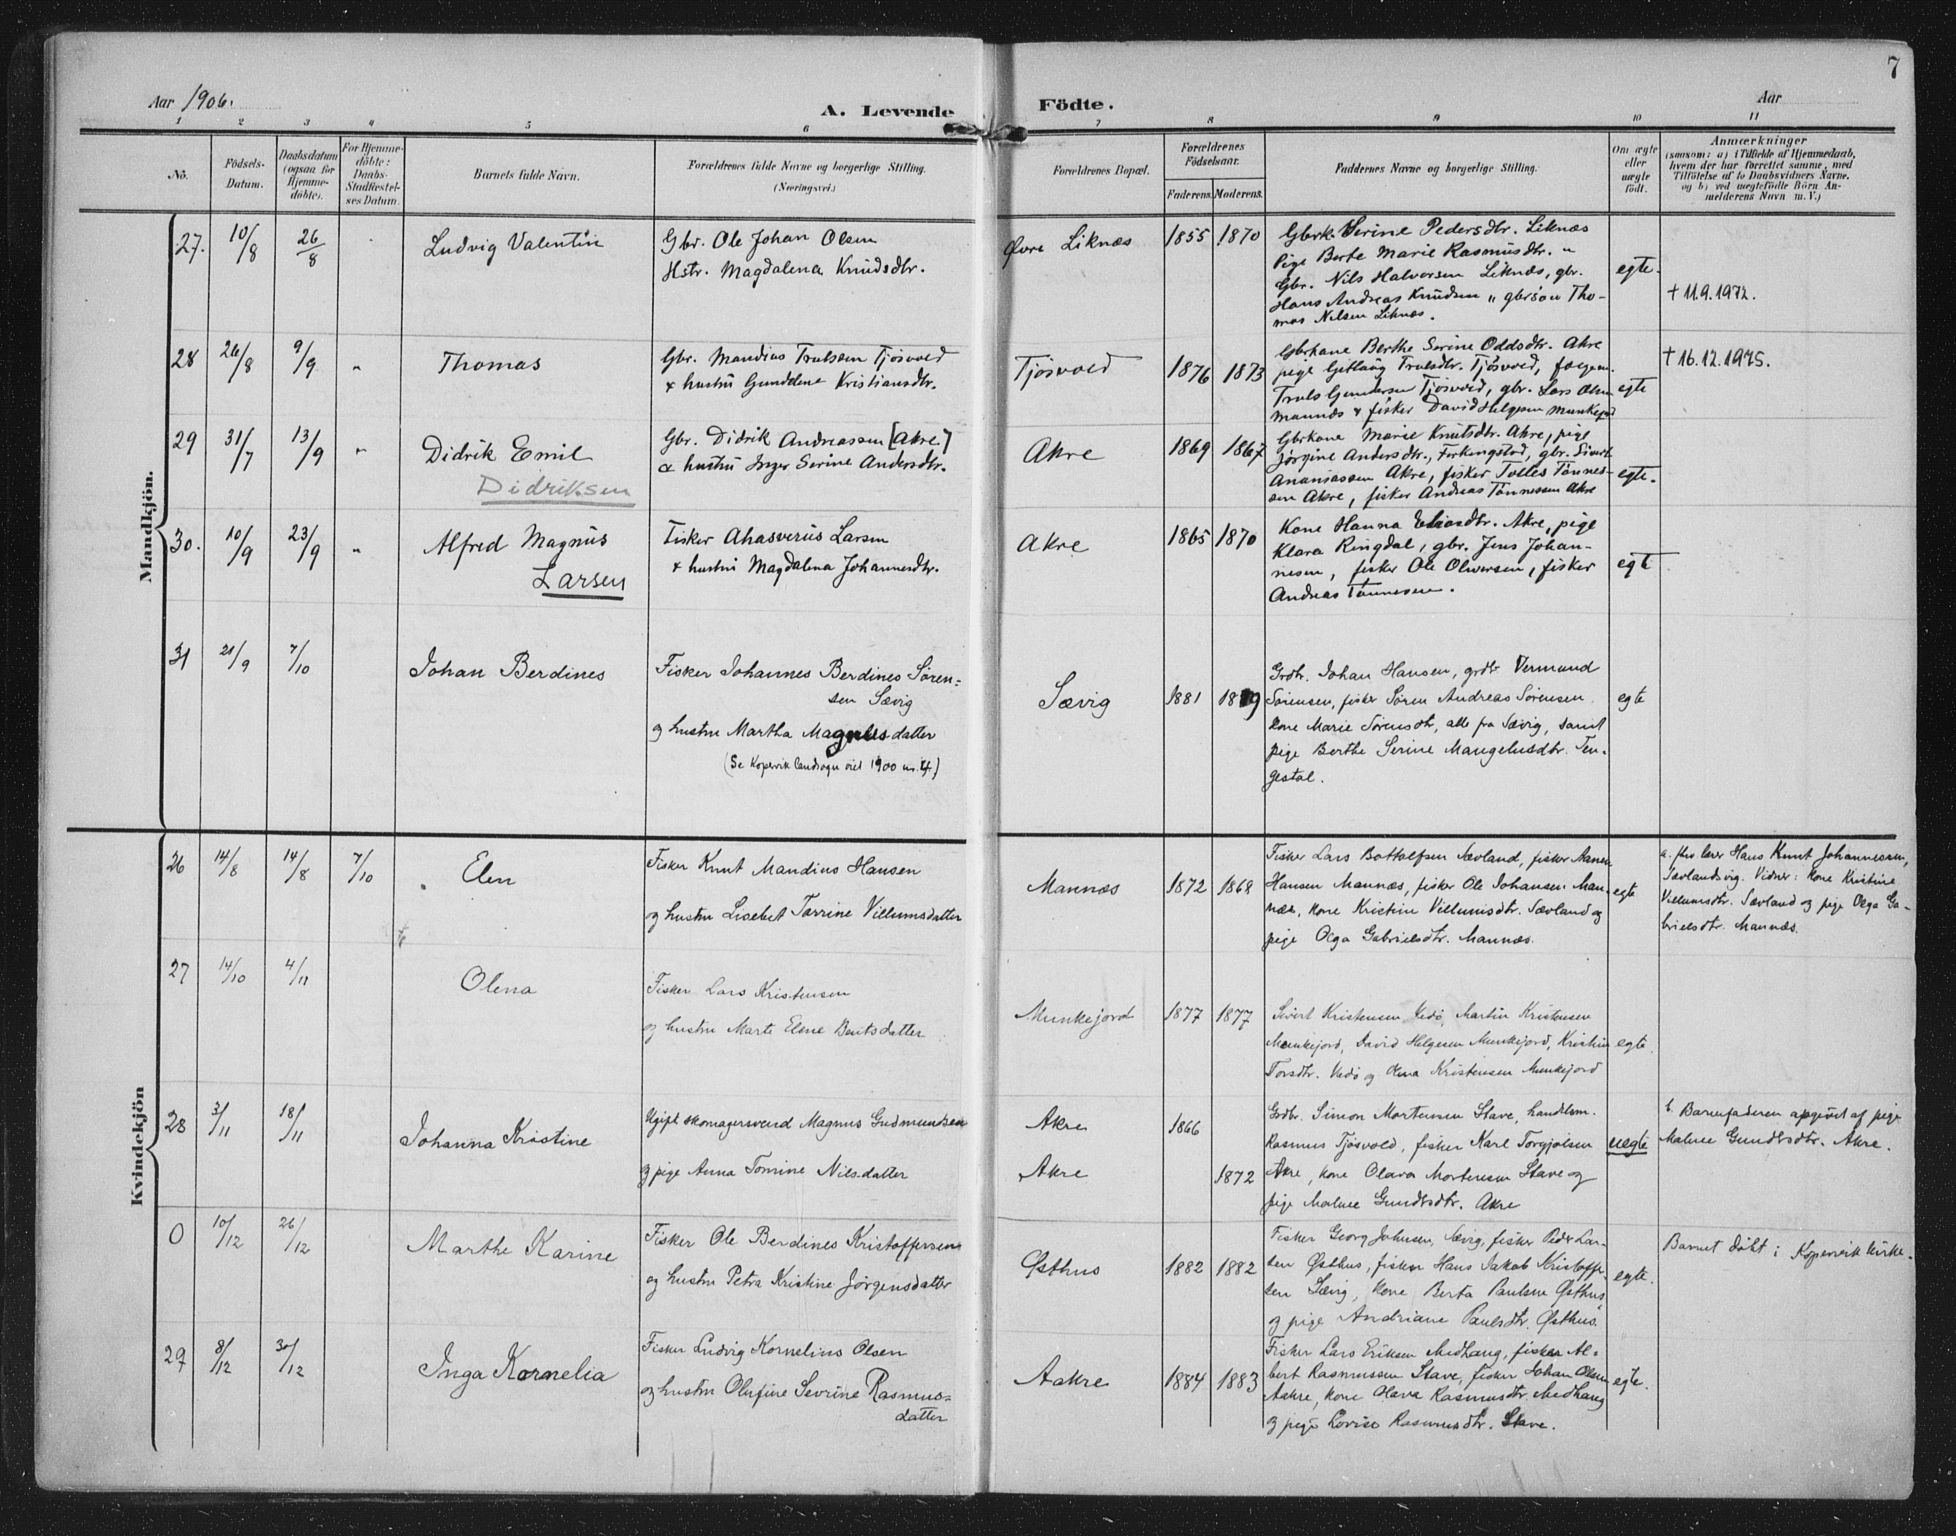 7
Aar 1906.
A. Levende Födte.
Aar
1 2 3 4 5 6 7 8 9 10 11
No.
Födsels-Datum.
Daabsdatum (ogsaa for Hjemme-döbte).
For Hjemme-döbte: Daabs-Stadfæstel-ses Datum.
Barnets fulde Navn.
Forældrenes fulde Navne og borgerlige Stilling.
(Næringsvei.)
Forældrenes Bopæl.
Forældrenes Födselsaar.
Faderens. Moderens.
Faddernes Navne og borgerlig Stilling.
Om ægte eller uægte födt.
Anmærkninger
(saasom: a) i Tilfælde af Hjemmedaab,
hvem der har forrettet samme, med
Tilföielse af to Daabsvidners Navne.
og b) ved uægtefödte Börn An-
melderens Navn m. V.)
Mandkjön.
27. 10/8 26/8 Ludvig Valentin
Gbr. Ole Johan Olsen
Hstr. Magdalena Knudsdtr.
Øvre Liknæs 1855 1870
Gbrk. Serine Pedersdtr. Liknæs
Pige Berte Marie Rasmusdtr. "
Gbr. Nils Halvorsen Liknæs, gbr.
Hans Andreas Knudsen " gbrsøn Tho-
mas Nilsen Liknæs.
egte.
† 11.9.1972.
28 26/8 9/9 " Thomas
Gbr. Mandius Trulsen Tjösvold
& hustru Gunddene Kristiansdtr.
Tjösvold 1876 1873
Gbrkone Berthe Serine Oddsdtr. Akre
pige Gitlaug Trulsdtr. Tjösvold,
Truls Gundersen Tjösvold, gbr. Lars Olsen
Mannes & fisker David Helgesen Munkejord
egte
† 16.12.1975.
29 31/7 13/9 " Didrik Emil
Didriksen
Gbr. Didrik Andreassen [Akre]
& hustru Inger Serine Andersdtr.
Akre 1869 1867
Gbrkone Marie Knutsdtr. Akre, pige
Jørgine Andersdtr., Ferkingstad, gbr. Sivert
Ananiassen Akre, fisker Tolles Tønnes-
sen Akre, fisker Andreas Tönnessen Akre
egte.
30. 10/9 23/9 " Alfred Magnus
Larsen
Fisker Ahasverus Larsen
& hustru Magdalena Johannesdtr.
Akre 1865 1870
Kone Hanna Eliasdtr. Akre, pige
Klara Ringdal, gbr. Jens Johan-
nesen, fisker Ole Oliversen, fisker
Andreas Tönnesen.
egte
31 21/9 7/10 Johan Berdines
Fisker Johannes Berdines Sören-
sen Sævig
og hustru Martha Magnusdatter
(Se Kopervik landsogn viet 1900 nr. 4)
Sævig 1881
Grdbr. Johan Hansen, grdb Vermund
Sørensen, fisker Søren Andreas Sørensen
kone Marie Sørensdtr, alle fra Sævig, samt
pige Berthe Serine Mangelusdtr. Ten-
gesdal.
egte
Kvindekjön
26 14/8 14/8 7/10 Elen
Fisker Knut Mandius Hansen
og hustru Lisebet Tarrine Villumsdatter
Mannæs 1872 1868
Fisker Lars Bottolfsen Sævland, fisker Aanen
Hansen Mannæs, fisker Ole Johansen Man-
næs, kone Kristine Villumsdtr. Sævland og
pige Olga Gabrielsdtr. Mannæs.
egte
a. ved lærer Hans Knut Johannesen,
Sævlandsvig. Vidner: kone Kristine
Villumsdtr. Sævland og pige Olga Ga-
brielsdtr. Mannæs.
27 14/10 4/11 Olena
Fisker Lars Kristensen
og hustru Marte Elene Bentsdatter
Munkejord 1877 1877
Sivert Kristensen Vedö, Martin Kristensen
Munkejord, David Helgesen Munkejord, Kristine
Torsdtr. Vedö og Olena Kristensen Munkejord
egte.
28 3/11 18/11 Johanna Kristine
Ugift skomagersvend Magnus Gudmundsen
og pige Anna Tomine Nilsdatter
Akre 1866
Akre 1872
Grdbr. Simon Mortensen Stave, handelsm.
Rasmus Tjösvold, fisker Karl Torgjølsen
Akre, kone Olava Mortensen Stave og
pige Malene Gundersdtr. Akre
uegte
b. Barnefaderen opgivet af pige
Malene Gundersdtr. Akre.
0 10/12 26/12 Marthe Karine
Fisker Ole Berdines Kristoffersen
og hustru Petra Kristine Jørgensdatter
Østhus 1882 1882
Fisker Georg Johnsen, Sævig, fisker Peder Lar-
sen Østhus, fisker Hans Jakob Kristoffer-
sen Sævig, kone Berta Paulsen Østhus
og pige Andriane Paulsdtr. Østhus.
egte.
Barnet döbt i Kopervik kirke.
29 8/12 30/12 Inga Kornelia
Fisker Ludvig Kornelius Olsen
og hustru Olufine Sevrine Rasmus-
datter
Aakre 1884 1883
Fisker Lars Eriksen Medhaug, fisker Al-
bert Rasmussen Stave, fisker Johan Olsen
Aakre, kone Olava Rasmusdtr. Medhaug
og pige Lovise Rasmusdtr. Stave.
egte.